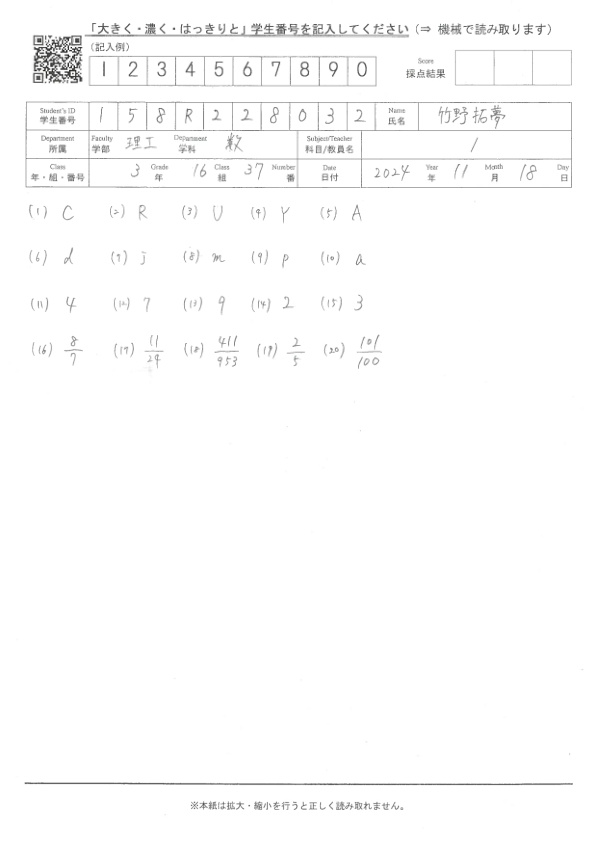 「大きく・濃く・はっきりと」学生番号を記入してください（⇒ 機械で読み取ります）
（記入例）
1 2 3 4 5 6 7 8 9 0
Score
採点結果
Student's ID
学生番号
1 5 8 R 2 2 8 0 3 2
Name
氏名
竹野拓夢
Department
所属
Faculty
学部
理工
Department
学科
数
Subject/Teacher
科目/教員名
/
Class
年・組・番号
3 Grade
年
16 Class
組
37 Number
番
Date
日付
2024 Year
年
11 Month
月
18 Day
日
(1) C (2) R (3) U (4) Y (5) A
(6) d (7) j (8) m (9) p (10) a
(11) 4 (12) 7 (13) 9 (14) 2 (15) 3
(16) 8/7 (17) 11/24 (18) 411/953 (19) 2/5 (20) 101/100
※本紙は拡大・縮小を行うと正しく読み取れません。